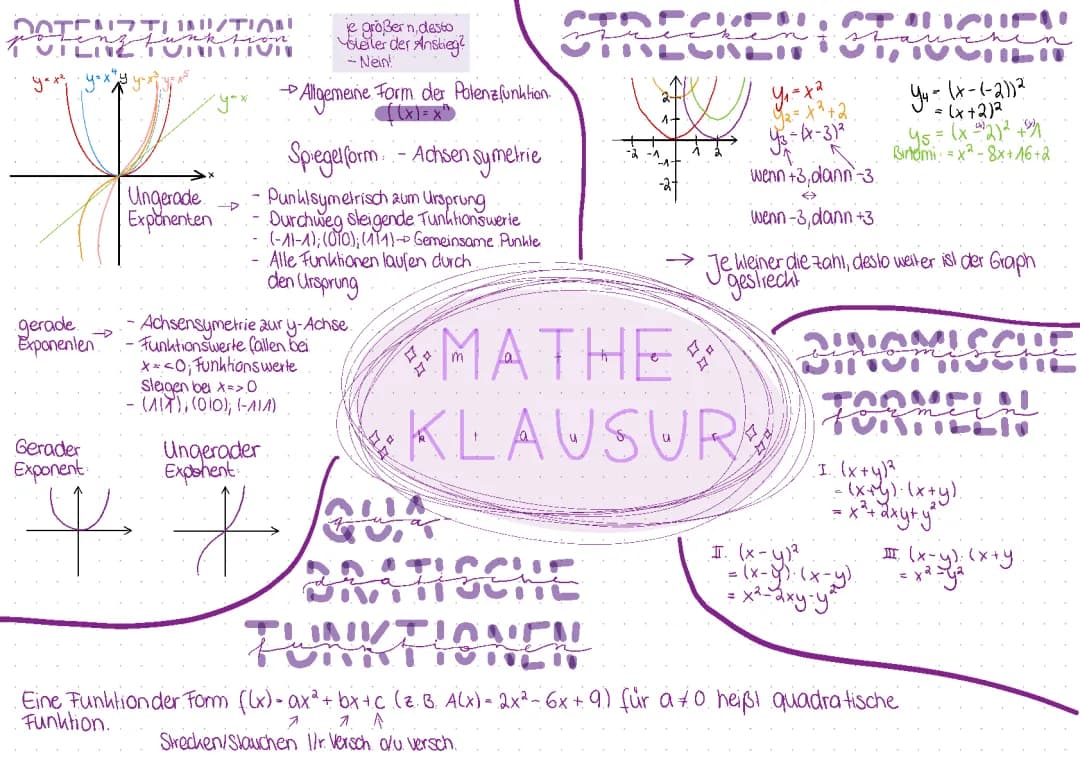 POTENZFUNKTION
potenzfunktion
je größer n, desto
steiler der Anstieg?
- Nein!
y=x² y=x⁴ y y=x³ y=x⁵
y=x
x
→ Allgemeine Form der Potenzfunktion
f(x)=xⁿ
Spiegelform: - Achsensymetrie
Ungerade
Exponenten →
- Punktsymetrisch zum Ursprung
- Durchweg steigende Funktionswerte
- (-1|-1); (0|0); (1|1) → Gemeinsame Punkte
- Alle Funktionen laufen durch
den Ursprung
gerade
Exponenten →
- Achsensymetrie zur y-Achse
- Funktionswerte fallen bei
x=<0; Funktionswerte
steigen bei x=>0
- (1|1), (0|0); (-1|1)
Gerader
Exponent:
Ungerader
Exponent:
STRECKEN + STAUCHEN
strecken + stauchen
2
1
-2 -1 1 2
-1
-2
y₁ = x²
y₂ = x²+2
y₃ = (x-3)²
wenn +3, dann -3
↔
wenn -3, dann +3
y₄ = (x-(-2))²
= (x+2)²
y₅ = (x-2)² +1
(x) (y)
Binomi: = x²-8x+16+2
→ Je kleiner die Zahl, desto weiter ist der Graph
gestreckt
MATHE
mathe
KLAUSUR
klausur
BINOMISCHE
binomische
FORMELN
formeln
I. (x+y)²
= (x+y)·(x+y)
= x²+2xy+y²
II. (x-y)²
= (x-y)·(x-y)
= x²-2xy-y²
III. (x-y)·(x+y
= x²-y²
QUA
qua
DRATISCHE
dratische
FUNKTIONEN
funktionen
Eine Funktion der Form f(x)=ax²+bx+c (z.B. A(x)=2x²-6x+9) für a≠0 heißt quadratische
Funktion.
Strecken/Stauchen l/r. Versch. o/u. versch.